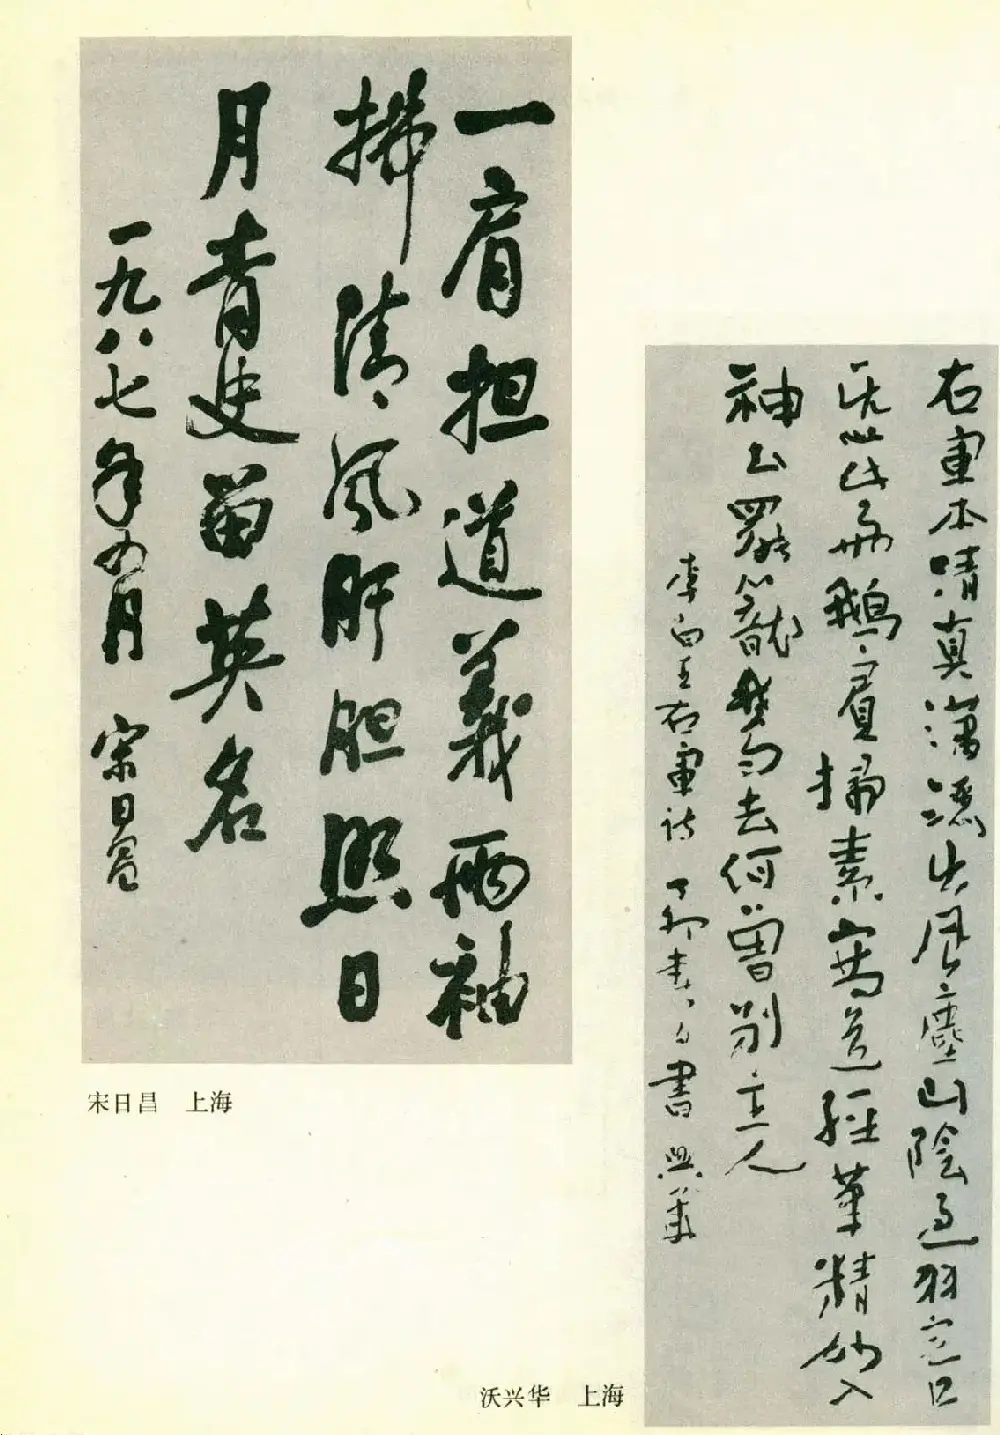 一肩担道義兩袖
拂清風肝胆照日
月青史留英名
一九八七年月 宋日昌
宋日昌 上海
右軍本清真瀟灑出風塵山陰過羽客
愛此好鵝賓掃素寫道經筆精妙入
神書罷籠鵝去何曾別主人
李白王右軍詩 丁卯書 興華
沃兴华 上海